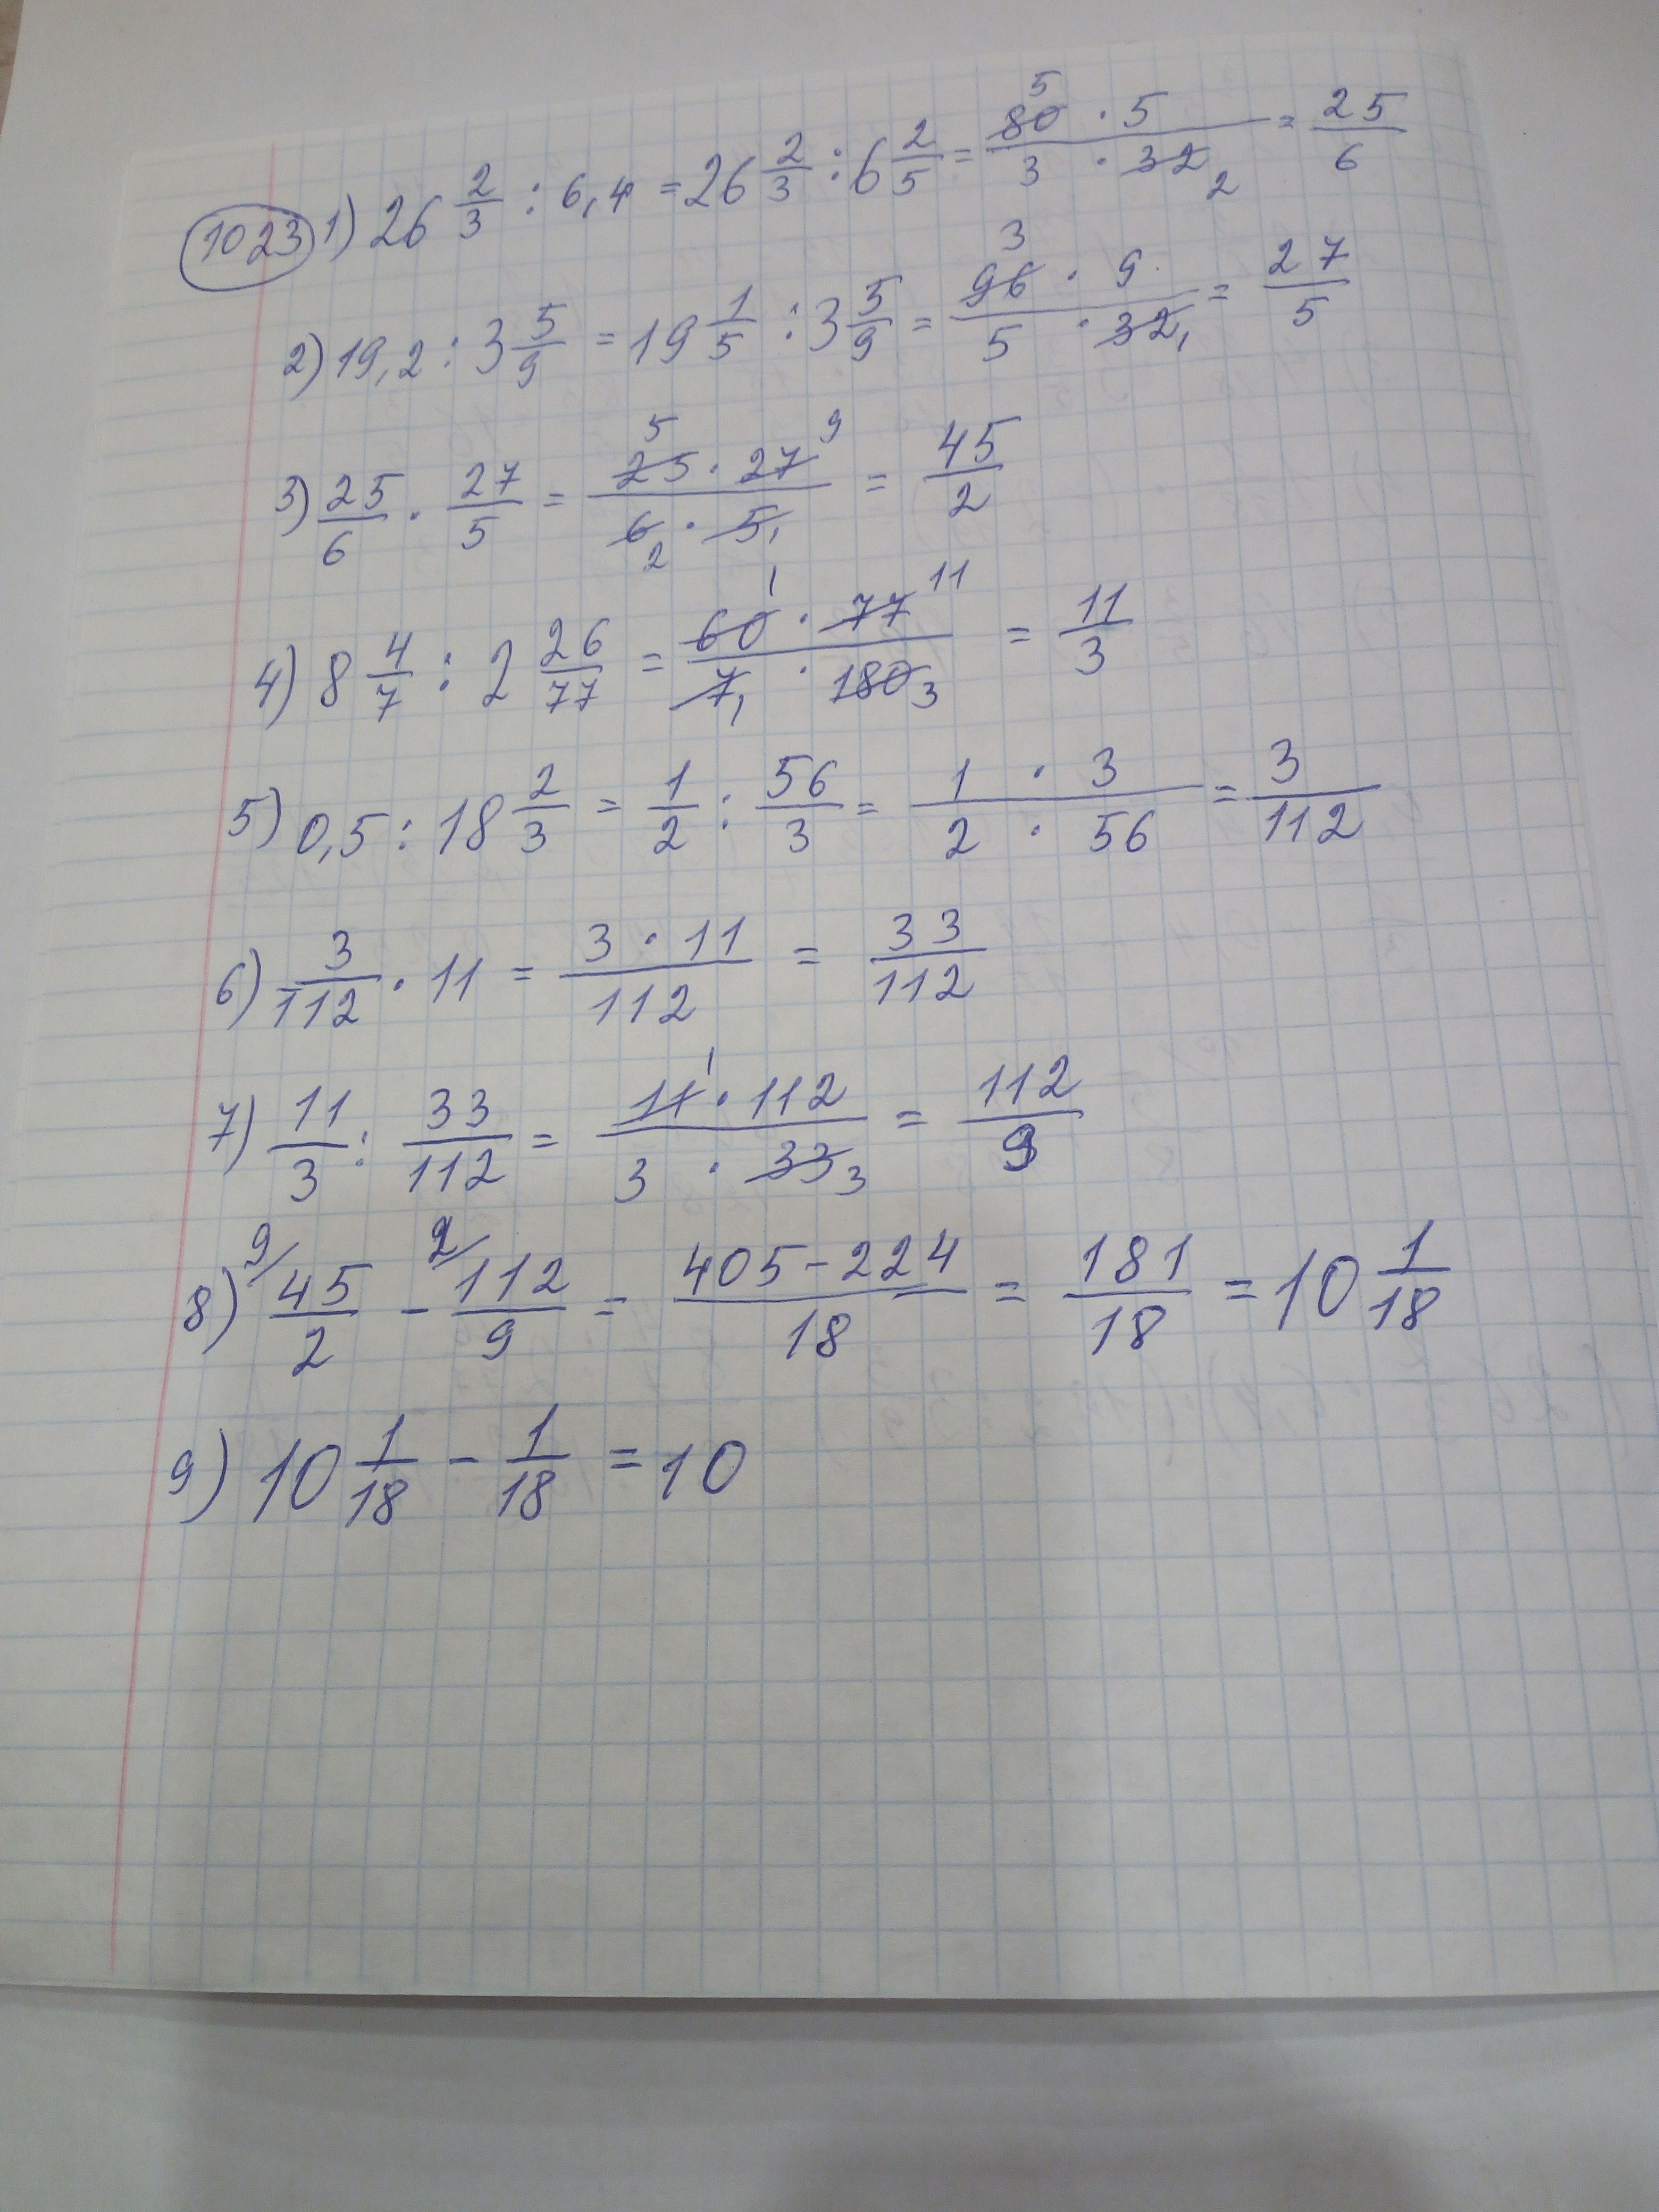 1023 1) 26 2/3 : 6,4 = 26 2/3 : 6 2/5 = 80 5 · 5 / 3 · 32 2 = 25/6
2) 19,2 : 3 5/9 = 19 1/5 : 3 5/9 = 96 3 · 9 / 5 · 32 1 = 27/5
3) 25/6 · 27/5 = 25 5 · 27 9 / 6 2 · 5 1 = 45/2
4) 8 4/7 : 2 26/77 = 60 1 · 77 11 / 7 1 · 180 3 = 11/3
5) 0,5 : 18 2/3 = 1/2 : 56/3 = 1 · 3 / 2 · 56 = 3/112
6) 3/112 · 11 = 3 · 11 / 112 = 33/112
7) 11/3 : 33/112 = 11 1 · 112 / 3 · 33 3 = 112/9
8) 9/ 45/2 - 2/ 112/9 = 405 - 224 / 18 = 181/18 = 10 1/18
9) 10 1/18 - 1/18 = 10